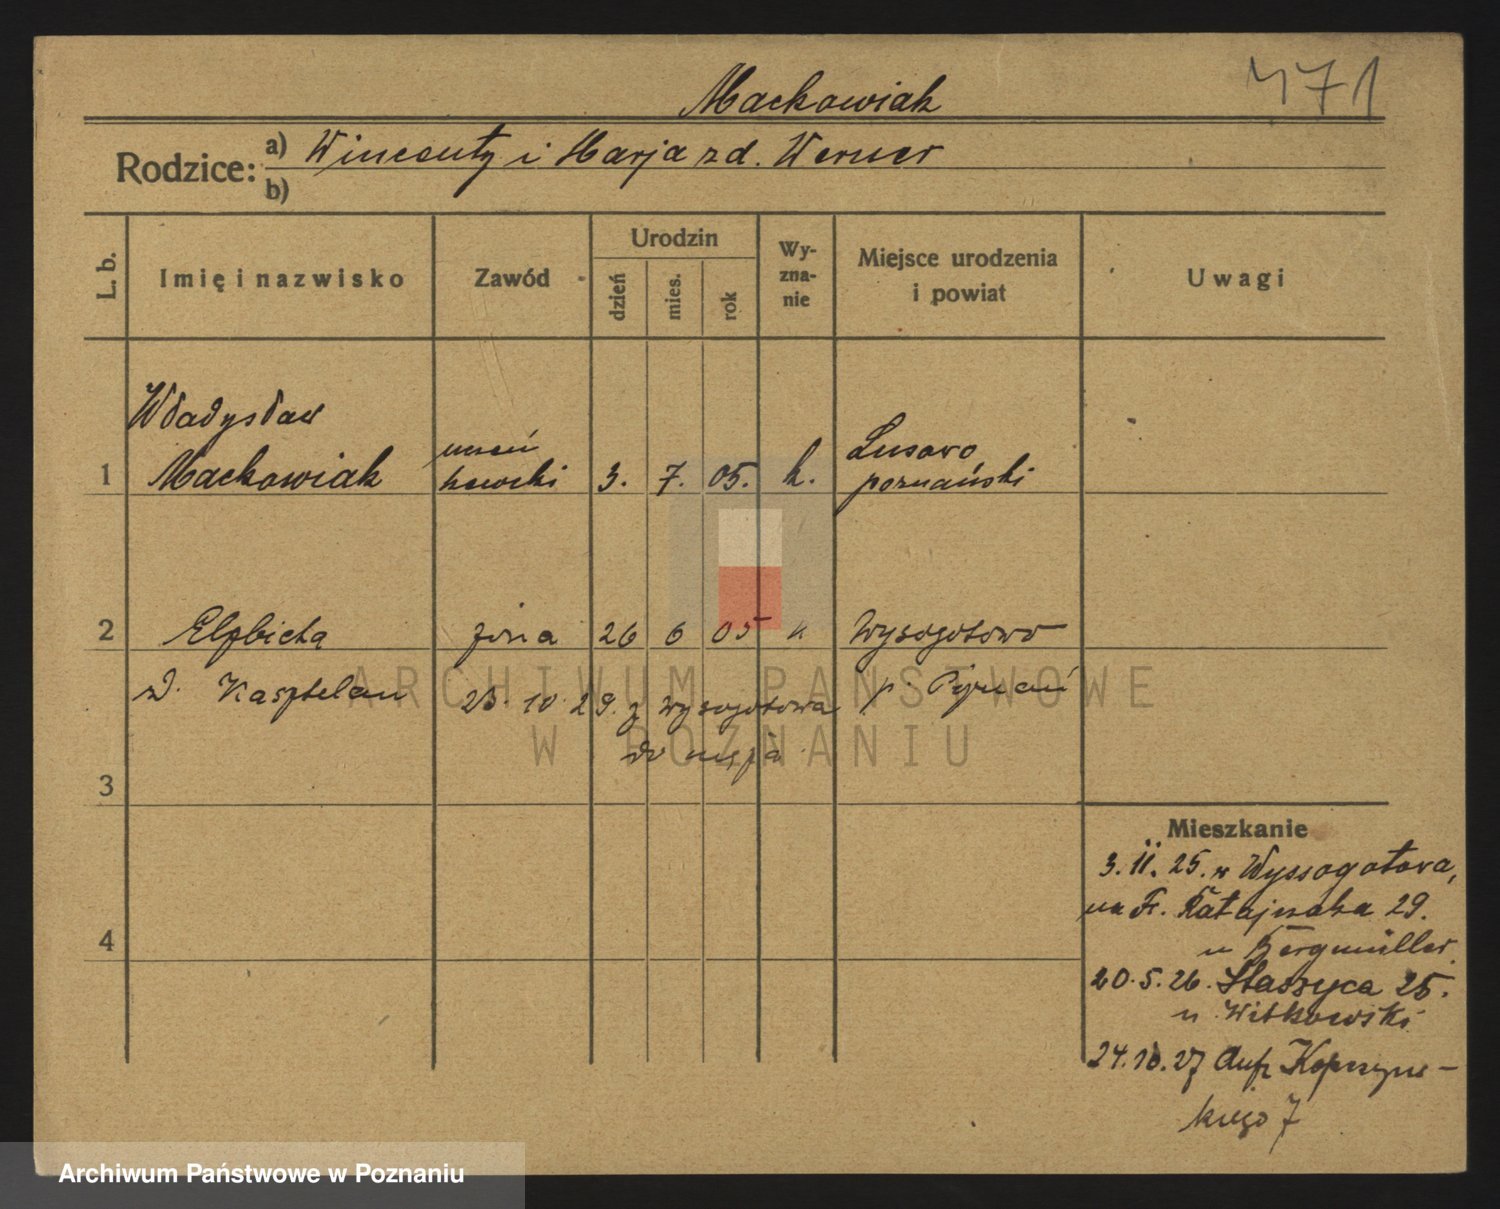 Mackowiak
771
Rodzice: a) Wincenty i Marja zd. Werner
b)
L. b.
Imię i nazwisko
Zawód
Urodzin
dzień
mies.
rok
Wy-
zna-
nie
Miejsce urodzenia
i powiat
Uwagi
Władysław
uczeń
Lusowo
1 Mackowiak kowalski 3. 7. 05. k. poznański
2 Elżbieta żona 26 6 05 k Wysogotowo
zd. Kasztelan 23. 10 29. z Wysogotowa p. Poznań
do męża
3
4
Mieszkanie
3. 11. 25. z Wyssogotowa,
na Fr. Ratajczaka 29.
u Bergmüller.
20. 5. 26. Staszyca 25.
u Witkowski
24. 10. 27
7
ARCHIWUM PAŃSTWOWE
W POZNANIU
Archiwum Państwowe w Poznaniu